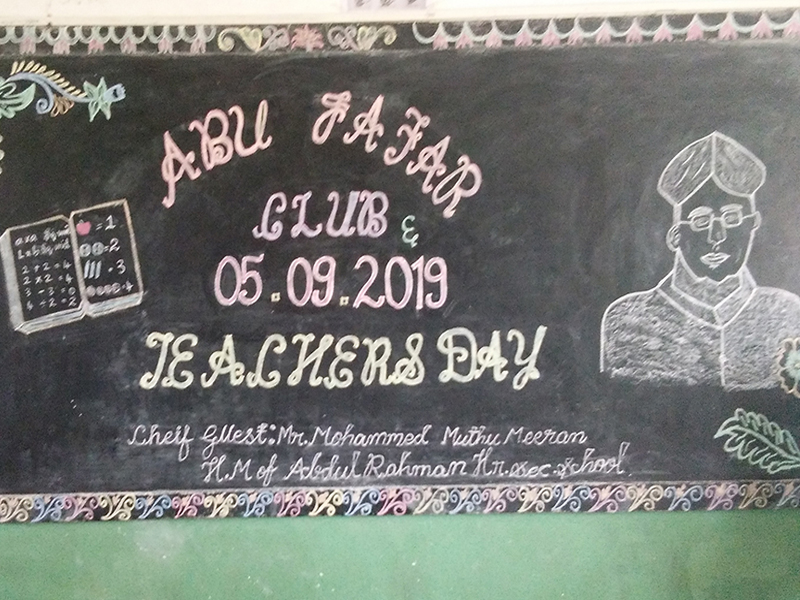 ABU JAFAR
CLUB &
05.09.2019
TEACHERS DAY
Cheif Guest: Mr. Mohammed Muthu Meeran
H.M of Abdul Rahman Hr. sec. school.
2 + 2 = 4
2 x 2 = 4
3 - 3 = 0
4 ÷ 2 = 2
= 1
= 2
= 3
= 4